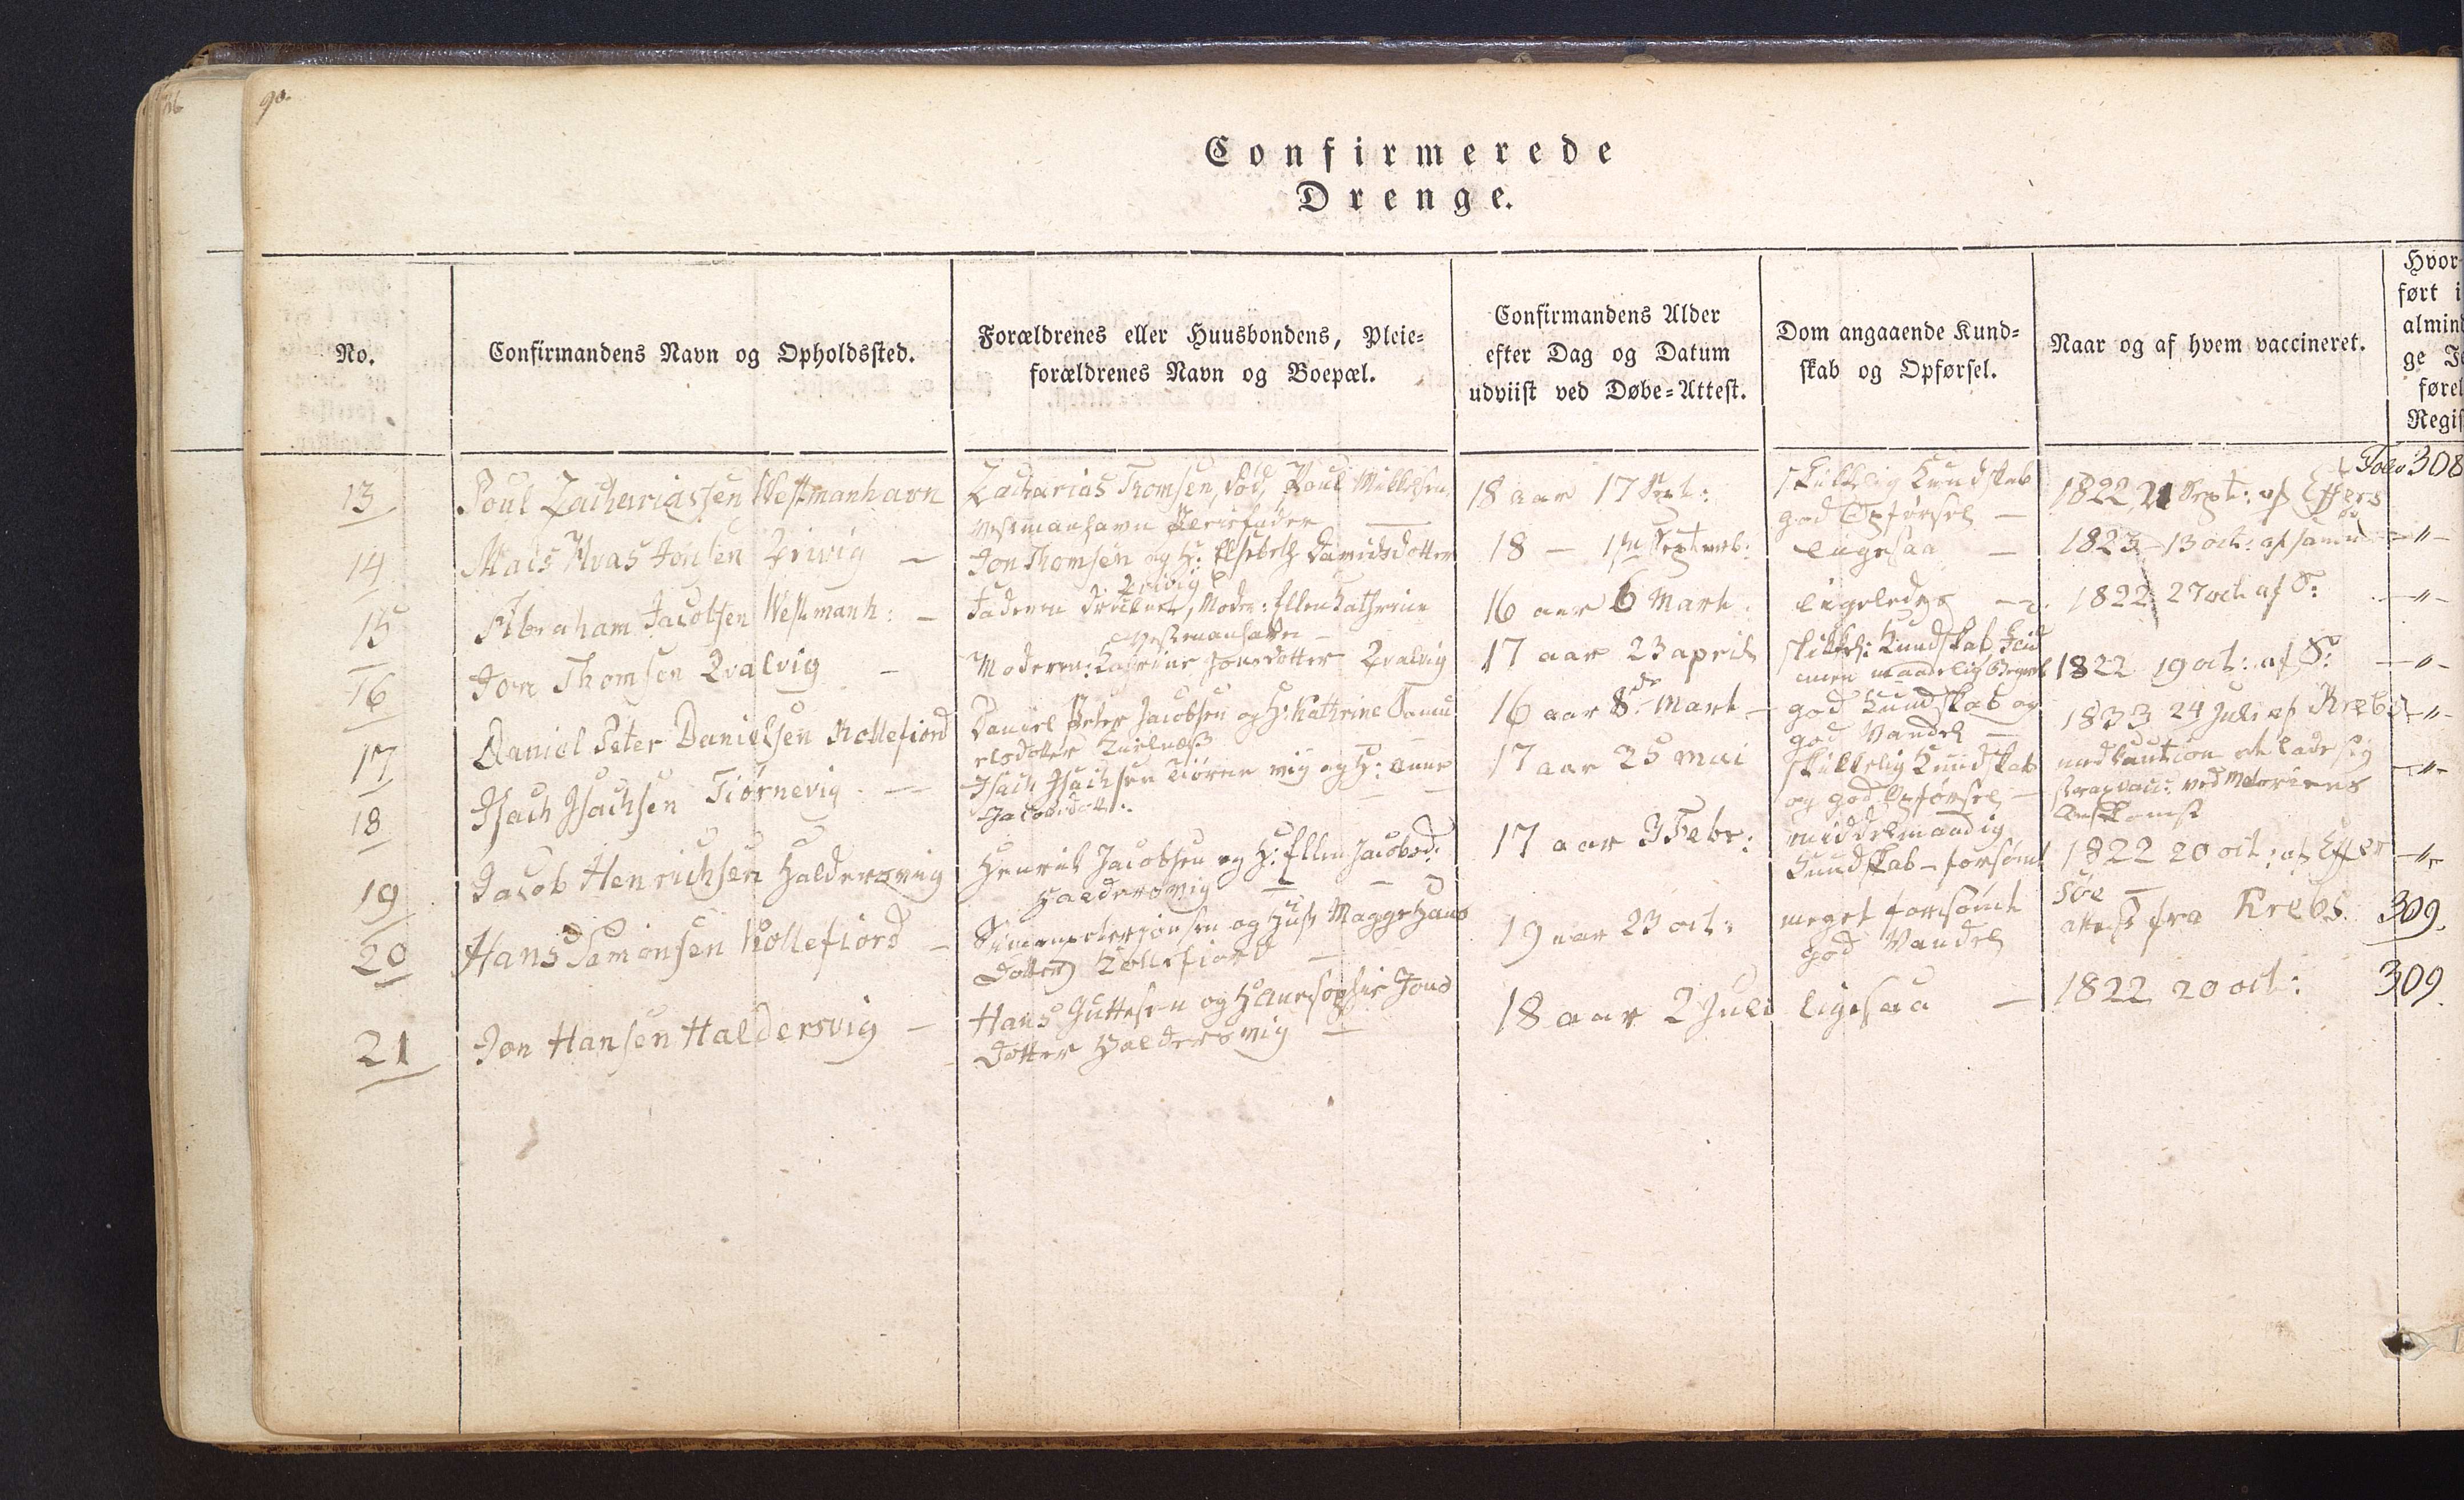 90.
Confirmerede
Drenge.
No.
Confirmandens Navn og Opholdssted.
Forældrenes eller Huusbondens, Pleie=
forældrenes Navn og Boepæl.
Confirmandens Alder
efter Dag og Datum
udviist ved Døbe=Attest.
Dom angaaende Kund=
skab og Opførsel.
Naar og af hvem vaccineret.
Hvor
ført i
almind
ge J
førel
Regis
13
Poul Zachariassen Westmanhavn
Zacharias Thomsen, død, Poul Mikkelsen
Westmanhavn Pleiefader —
18 aar 17 Sept:
skikkelig Kundskab
god Opførsel —
1822 21 Sept: af Effers
Folio 308
14
Jonsen —
Jon Thomsen og H: Elsebeth Davidsdotter
18 — 1ste Septemb:
ligesaa —
1823 — 13 oct: af samme
— " —
15
Abraham Jacobsen Westmanh: —
Faderen druknet, Moder: Ellen Kathrine
16 aar 6 Mart.
ligeledes —
1822 27 oct. af S:
— " —
16
Jon Thomsen Qvalvig —
Moderen: Katrine Jonsdotter Qvalvig
17 aar 23 april
skikkel: Kundskab
1822 19 oct: af S:
— " —
17
Daniel Peter Danielsen Kollefiord
Daniel Peter Jacobsen og H: Kathrine Samu
elsdotter
16 aar 8de Mart —
god Kundskab og
god Vandel —
1833 24 Juli af Krebs
— " —
18
Isach Isachsen Tiørnevig. —
Isach Isachsen Tiørnevig og H: Anne
Jacobsdott:
17 aar 25 mai
skikkelig Kundskab
og god Opførsel —
med Caution at lade sig
strax vacc: ved Materiens
Ankomst
— " —
19
Jacob Henrichsen Haldersvig
Henrik Jacobsen og H: Ellen Jacobsd:
Haldersvig —
17 aar 3 Febr:
middelmaadig
Kundskab — forsømt
1822 20 oct: af Effer
søe
— " —
20
Hans Semonsen Kollefiord —
Simonpeterjonsen og Hust Maggehans
Dotter Kollefiord —
19 aar 23 oct:
meget forsømt
god Vandel
attest fra Krebs.
309.
21
Jon Hansen Haldersvig —
Hans Guttesen og H Annesophie Jons
Dotter Haldersvig —
18 aar 2 Juli
ligesaa —
1822 20 oct:
309.